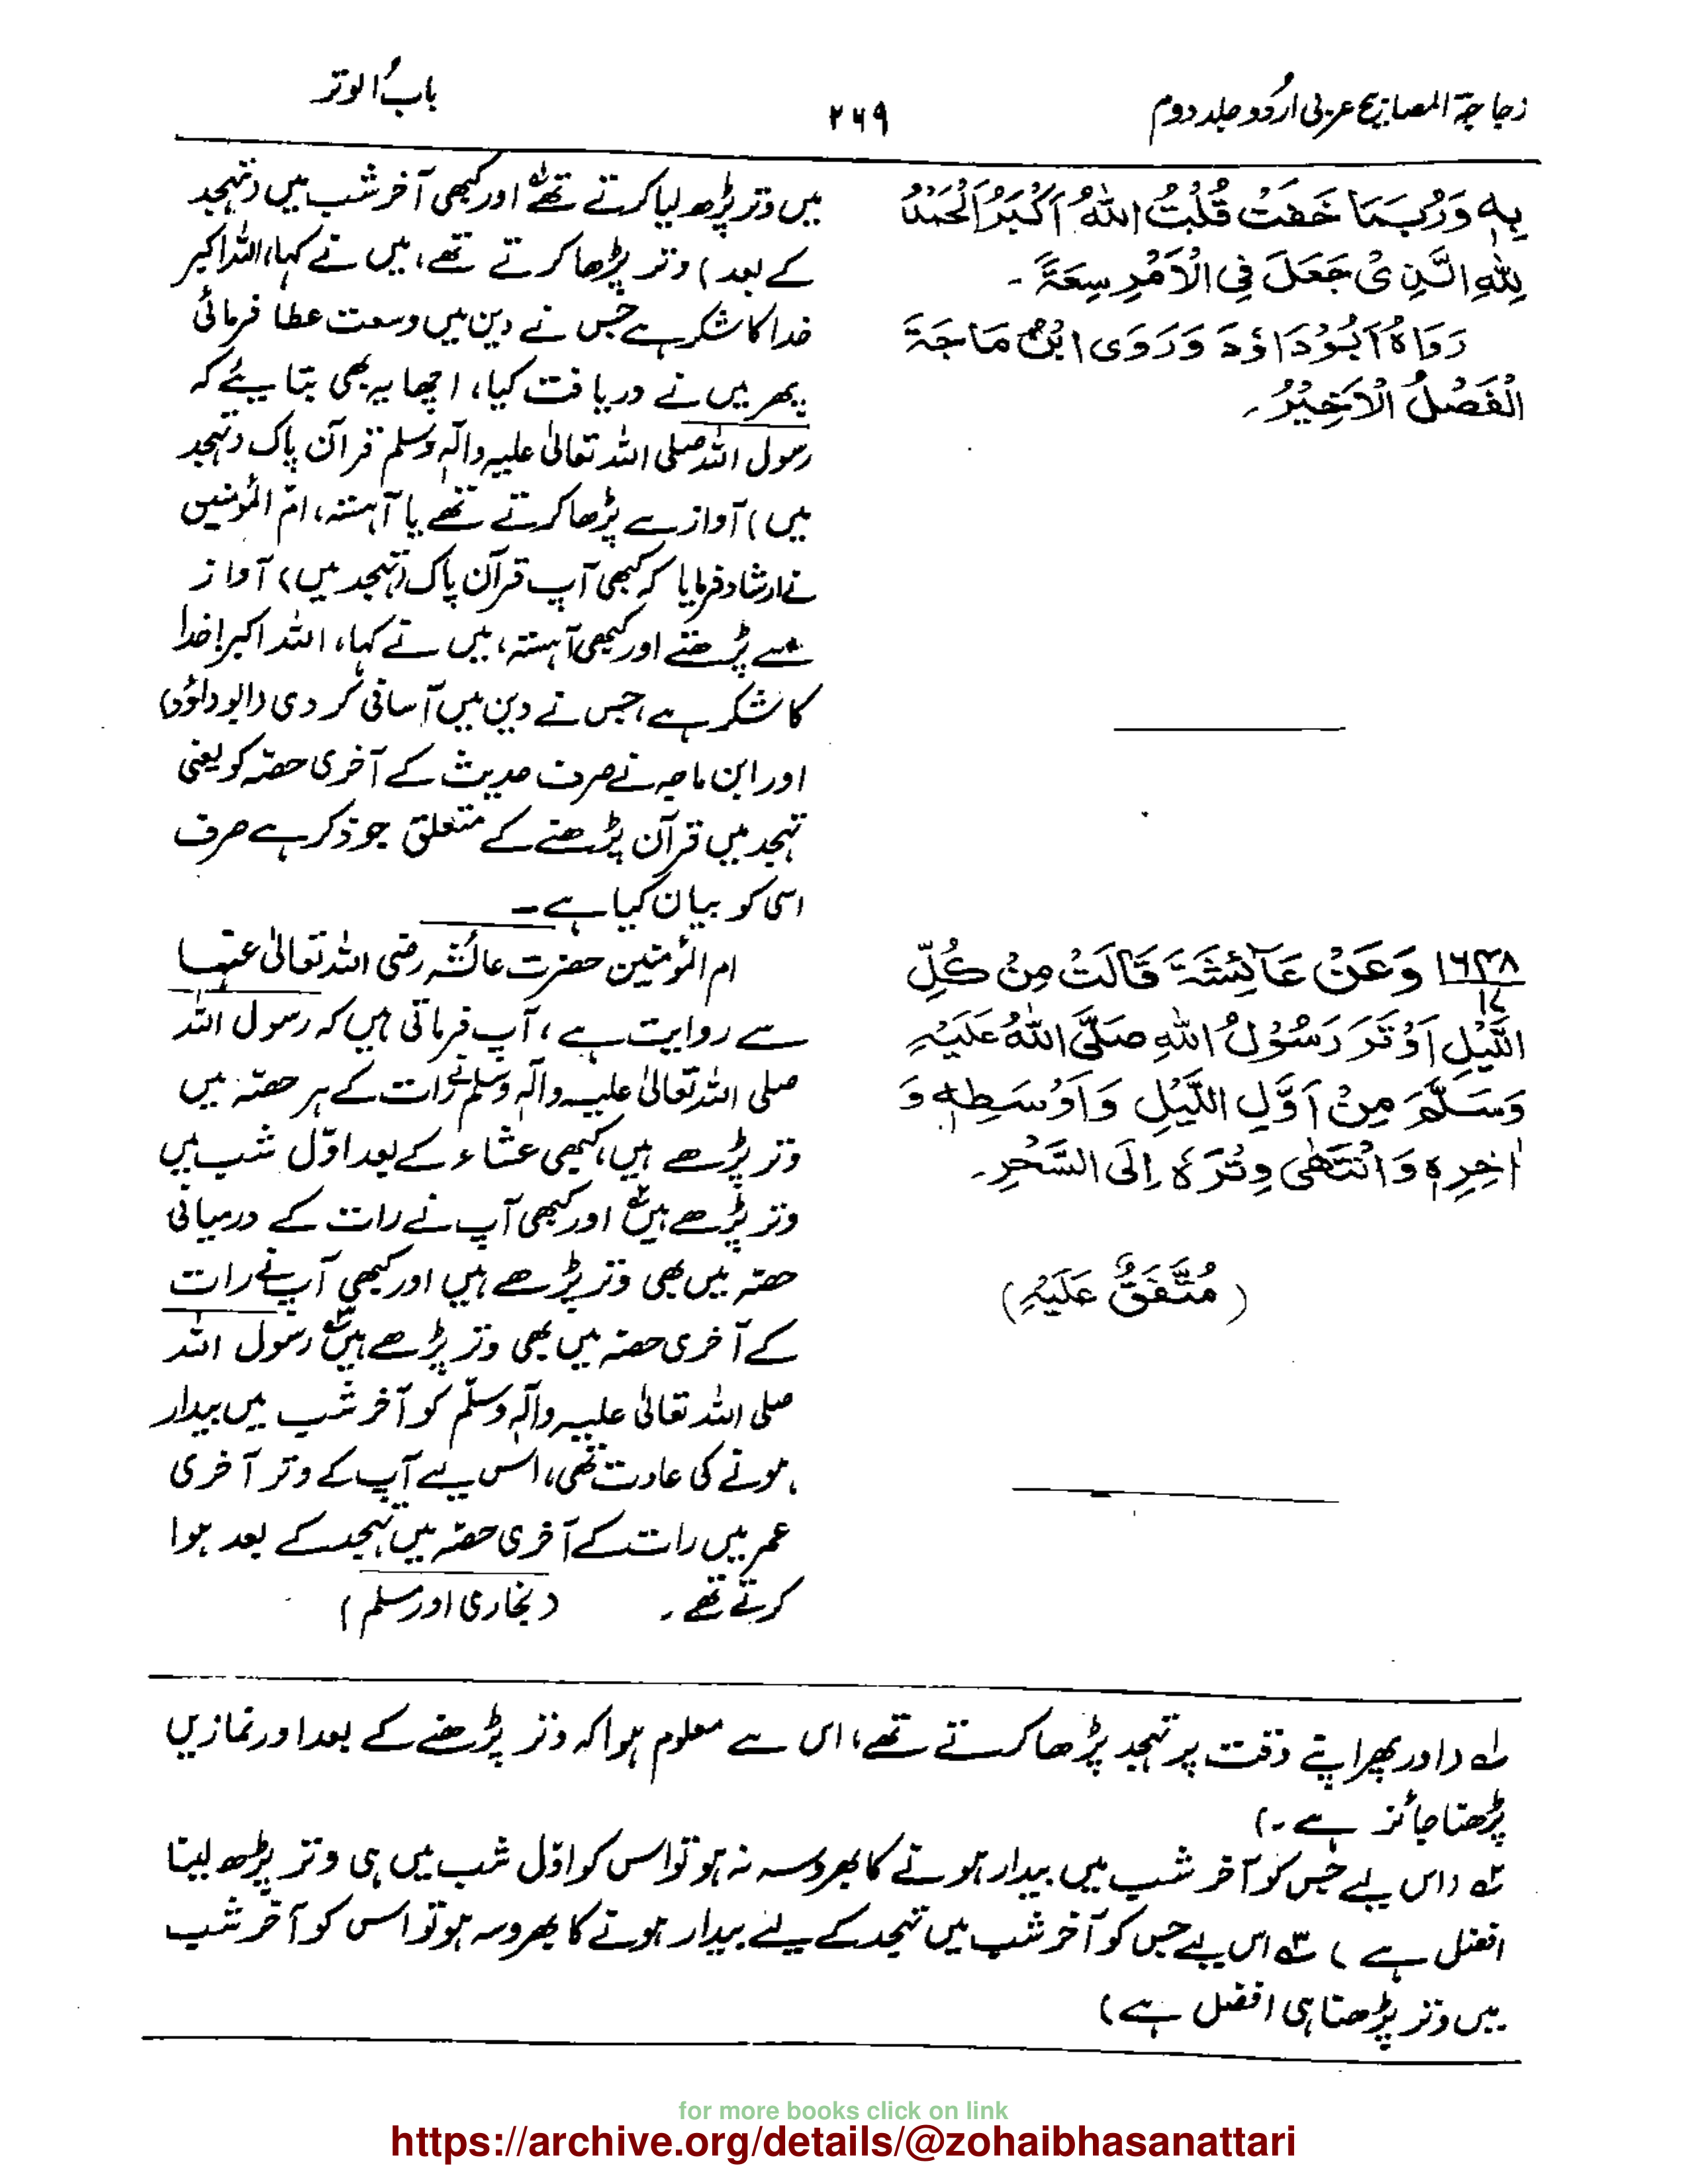 زجاجۃ المصابیح عربی اردو جلد دوم
۲۶۹
بابُ الوتر
بِهٖ وَرُبَمَا خَفَتَ قُلْتُ اللّٰهُ اَكْبَرُ اَلْحَمْدُ
لِلّٰهِ الَّذِىْ جَعَلَ فِى الْاَمْرِ سِعَةً۔
رَوَاهُ اَبُوْدَاؤُدَ وَرَوَى ابْنُ مَاجَةَ
الْفَصْلُ الْاَخِيْرُ۔
۱۶۳۸/۱۷ وَعَنْ عَآئِشَةَ قَالَتْ مِنْ كُلِّ
اللَّيْلِ اَوْتَرَ رَسُوْلُ اللّٰهِ صَلَّى اللّٰهُ عَلَيْهِ
وَسَلَّمَ مِنْ اَوَّلِ اللَّيْلِ وَاَوْسَطِهٖ وَ
اٰخِرِهٖ وَانْتَهٰى وِتْرُهٗ اِلَى السَّحْرِ۔
(مُتَّفَقٌ عَلَيْهِ)
میں وتر پڑھ لیا کرتے تھے لہ اور کبھی آخر شب میں (تہجد
کے بعد) وتر پڑھا کرتے تھے، میں نے کہا، اللہ اکبر
خدا کا شکر ہے جس نے دین میں وسعت عطا فرمائی
پھر میں نے دریافت کیا، اچھا یہ بھی بتایئے کہ
رسول اللہ صلی اللہ تعالیٰ علیہ وآلہٖ وسلم قرآن پاک (تہجد
میں) آواز سے پڑھا کرتے تھے یا آہستہ، امّ المؤمنین
نے ارشاد فرمایا کہ کبھی آپ قرآن پاک (تہجد میں) آواز
سے پڑھتے اور کبھی آہستہ، میں نے کہا، اللہ اکبر! خدا
کا شکر ہے، جس نے دین میں آسانی کر دی (ابوداؤد)
اور ابن ماجہ نے صرف حدیث کے آخری حصّہ کو یعنی
تہجد میں قرآن پڑھنے کے متعلق جو ذکر ہے صرف
اسی کو بیان کیا ہے۔
ام المؤمنین حضرت عائشہ رضی اللہ تعالیٰ عنہا
سے روایت ہے، آپ فرماتی ہیں کہ رسول اللہ
صلی اللہ تعالیٰ علیہ وآلہٖ وسلم نے رات کے ہر حصّہ میں
وتر پڑھے ہیں، کبھی عشاء کے بعد اوّل شب میں
وتر پڑھے ہیں ۲ہ اور کبھی آپ نے رات کے درمیانی
حصّہ میں بھی وتر پڑھے ہیں اور کبھی آپ نے رات
کے آخری حصّہ میں بھی وتر پڑھے ہیں ۳ہ رسول اللہ
صلی اللہ تعالیٰ علیہ وآلہٖ وسلّم کو آخر شب میں بیدار
ہونے کی عادت تھی، اس لیے آپ کے وتر آخری
عمر میں رات کے آخری حصّہ میں تہجد کے بعد ہوا
کرتے تھے۔ (بخاری اور مسلم)
لہ (اور پھر اپنے وقت پر تہجد پڑھا کرتے تھے، اس سے معلوم ہوا کہ وتر پڑھنے کے بعد اور نمازیں
پڑھنا جائز ہے۔)
۲ہ (اس لیے جس کو آخر شب میں بیدار ہونے کا بھروسہ نہ ہو تو اس کو اوّل شب میں ہی وتر پڑھ لینا
افضل ہے) ۳ہ اس لیے جس کو آخر شب میں تہجد کے لیے بیدار ہونے کا بھروسہ ہو تو اس کو آخر شب
میں وتر پڑھنا ہی افضل ہے)
for more books click on link
https://archive.org/details/@zohaibhasanattari